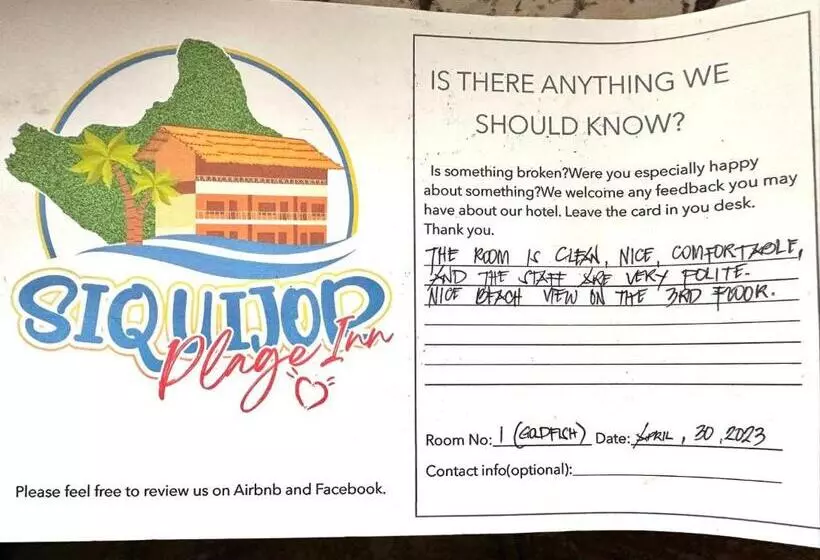 SIQUIJOD
Plage Inn
Please feel free to review us on Airbnb and Facebook.
IS THERE ANYTHING WE
SHOULD KNOW?
Is something broken?Were you especially happy
about something?We welcome any feedback you may
have about our hotel. Leave the card in you desk.
Thank you.
THE ROOM IS CLEAN, NICE, COMFORTABLE,
AND THE STAFF ARE VERY POLITE.
NICE BEACH VIEW ON THE 3RD FLOOR.
Room No: 1 (GOLDFISH) Date: APRIL, 30, 2023
Contact info(optional):